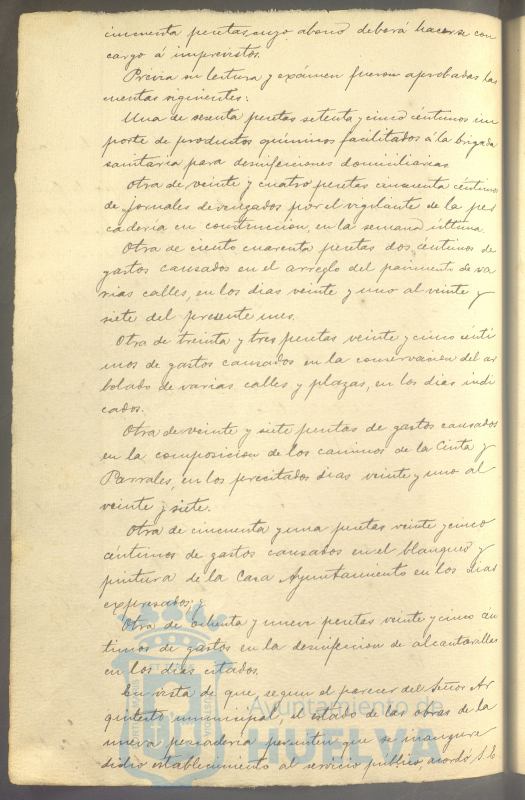 cincuenta pesetas cuyo abono deberá hacerse con
cargo á imprevistos.
Previa su lectura y exámen fueron aprobadas las
cuentas siguientes:
Una de sesenta pesetas setenta y cinco céntimos im
porte de productos químicos facilitados á la brigada
sanitaria para desinfecciones domiciliarias
Otra de veinte y cuatro pesetas cincuenta céntimos
de jornales devengados por el vigilante de la pes
cadería en construcción, en la semana última.
Otra de ciento cuarenta pesetas dos céntimos de
gastos causados en el arreglo del pavimento de va
rias calles, en los dias veinte y uno al veinte y
siete del presente mes.
Otra de treinta y tres pesetas veinte y cinco cénti
mos de gastos causados en la conservacion del ar
bolado de varias calles y plazas, en los dias indi
cados.
Otra de veinte y siete pesetas de gastos causados
en la composicion de los caminos de la Cinta y
Parrales, en los precitados dias veinte y uno al
veinte y siete.
Otra de cincuenta y una pesetas veinte y cinco
céntimos de gastos causados en el blanqueo y
pintura de la Casa Ayuntamiento en los dias
expresados;
Otra de ochenta y nueve pesetas veinte y cinco cén
timos de gastos en la desinfeccion de alcantarillas
en los dias citados.
En vista de que, segun el parecer del Señor Ar
quitecto municipal, el estado de las obras de la
nueva pescadería permiten que se inaugura
dicho establecimiento al servicio publico, acordó S. E.
Ayuntamiento de
HUELVA